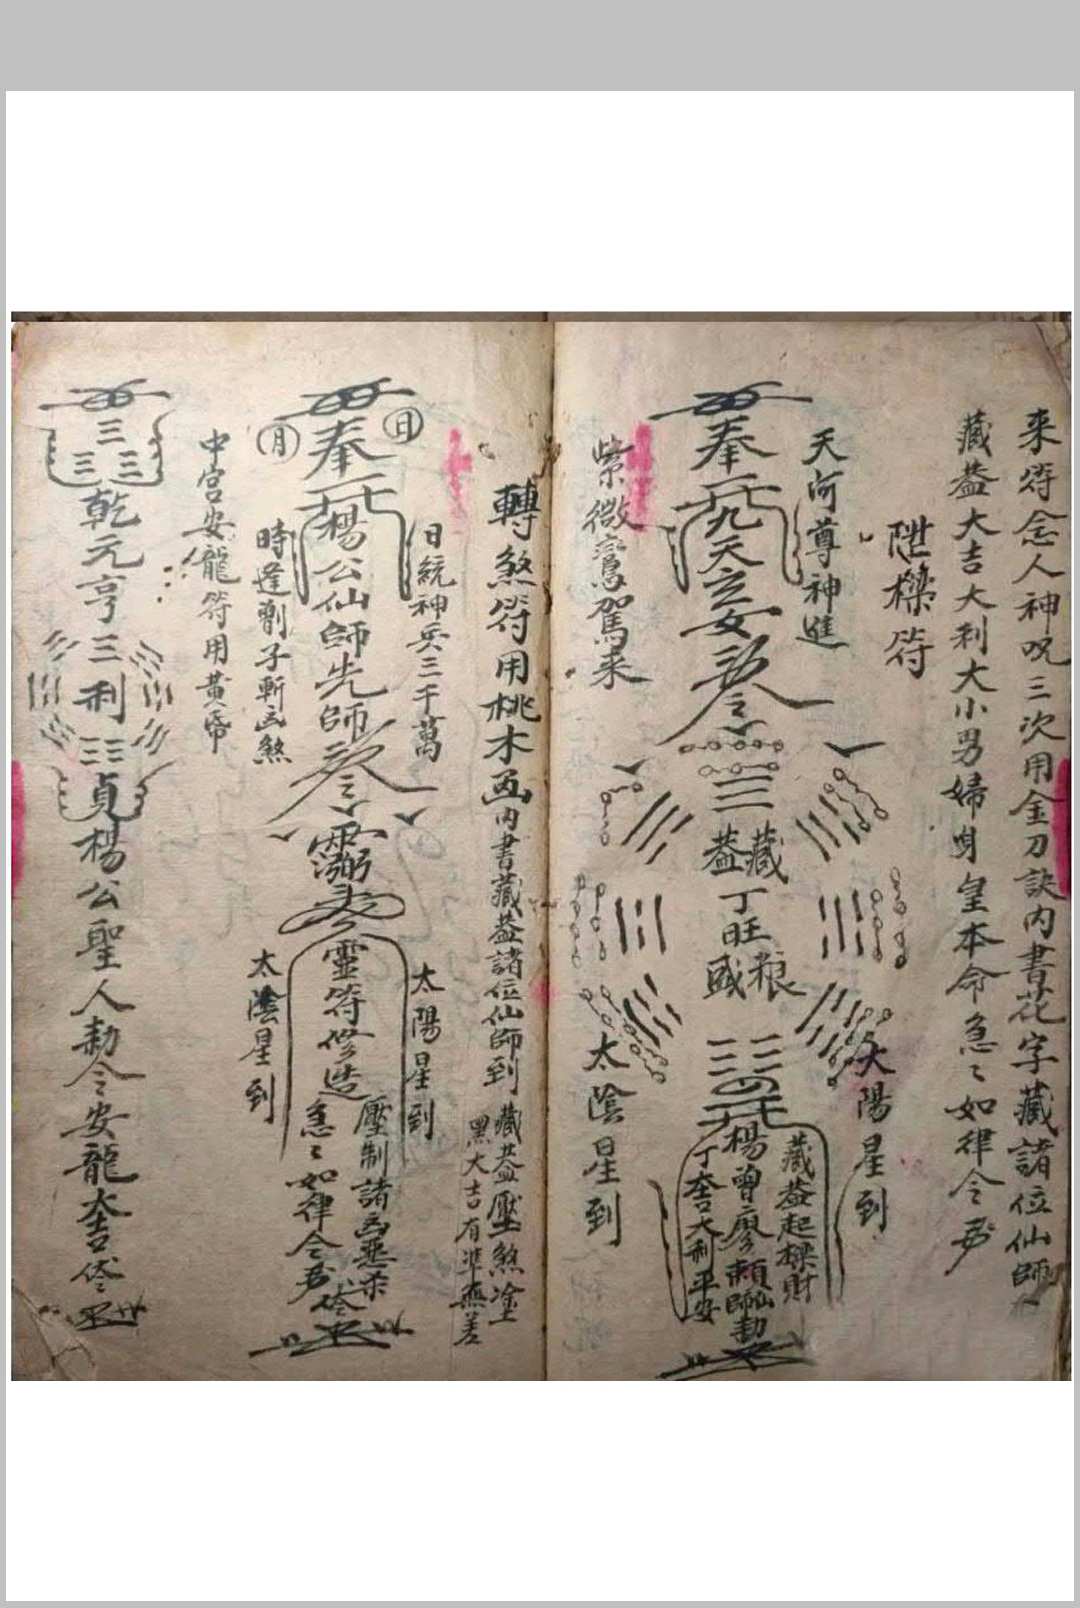 来符念人神咒三次用金刀訣内書花字藏諸位仙師
藏葢大吉大利大小男婦身皇本命急〻如律令
陞樑符
天河尊神進
太陽星到
奉
九天玄女
藏葢
丁旺
粮盛
楊曾廖賴仙師勅
藏葢起樑財
丁大吉大利平安
紫微鸞駕来
太陰星到
轉煞符用桃木
内書藏葢諸位仙師到
藏葢壓煞塗
黑大吉有準無差
日
日統神兵三千萬
太陽星到
奉
楊公仙師先師
靈符修造
壓制諸凶惡杀
急〻如律令
月
時逢劊子斬凶煞
太陰星到
中宫安龍符用黄帋
乾元亨利貞楊公聖人勅令安龍大吉